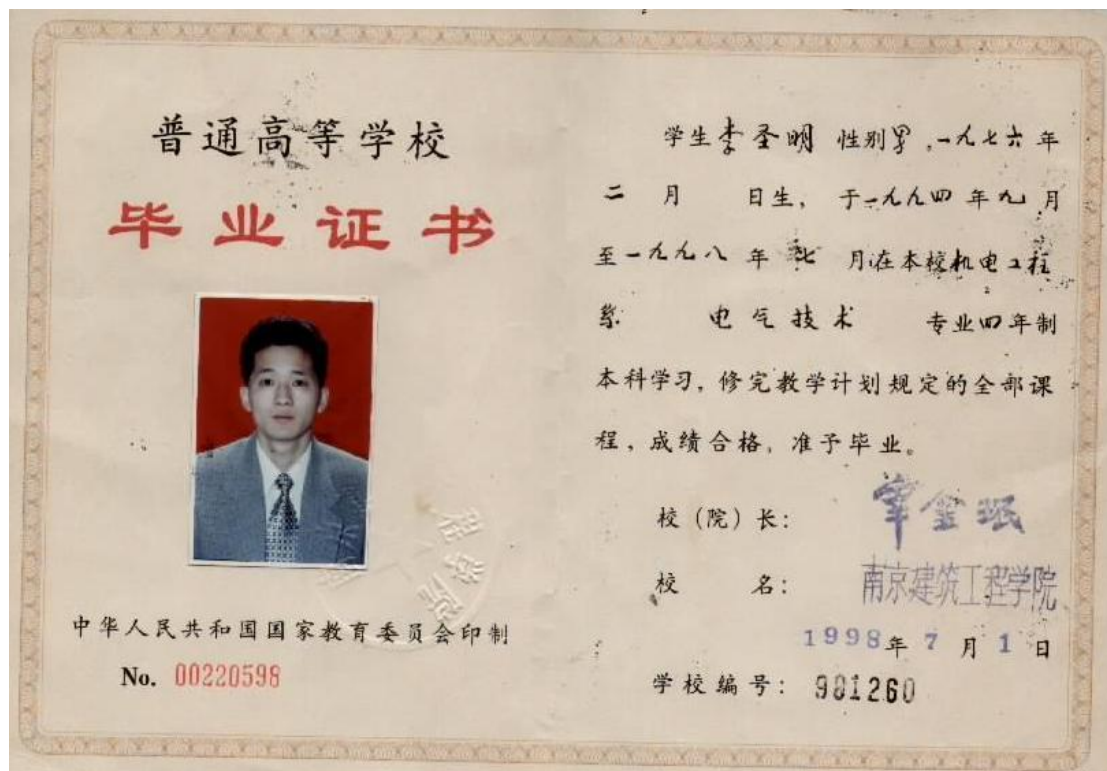 普通高等学校
毕业证书
中华人民共和国国家教育委员会印制
No. 00220598
学生李圣明 性别男，一九七六年
二 月 日生，于一九九四年九月
至一九九八年七月在本校机电工程
系 电气技术 专业四年制
本科学习，修完教学计划规定的全部课
程，成绩合格，准予毕业。
校（院）长：
校 名： 南京建筑工程学院
1998年 7 月 1 日
学校编号： 981260